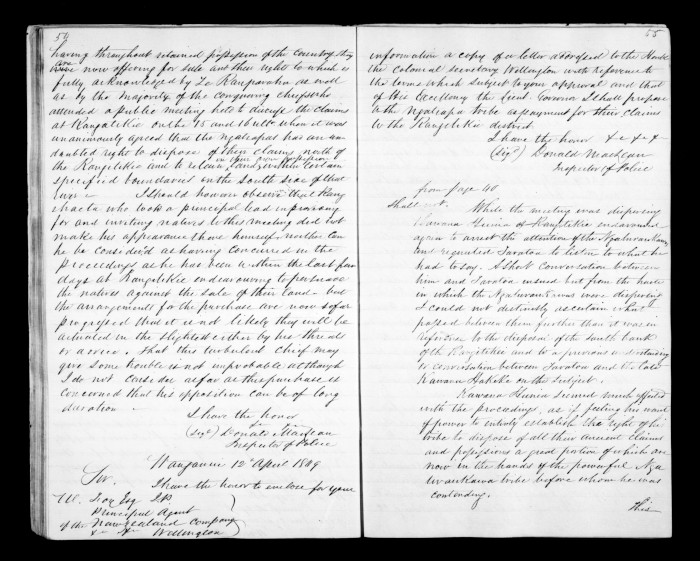 54
having throughout retained possession of the Country they
are now offering for sale and their right to which is
fully acknowledged by Te Rauparaha as well
as by the majority of the concurring chiefs who
attended a public meeting held to discuss the claims
at Rangitikei on the 15 and 16 ulto when it was
unanimously agreed that the Ngatiapas has an un-
doubted right to dispose of their claims north of
the Rangitikei and to retain in their own possession land within certain
specified boundaries on the South side of that
I should however observe that Rangi
haeata who took a principal lead in promising
for and inviting natives to this meeting did not
make his appearance there himself neither can
he be consider'd as having concurred in the
proceedings as he has been within the last few
days at Rangitikei endeavouring to persuade
the natives against the sale of their land - but
the arrangements for the purchase are now so far
progressed that it is not likely they will be
actuated in the slightest either by his threats
or advice - that this turbulent chief may
give some trouble is not improbable although
I do not consider as far as this purchase is
concerned that his opposition can be of long
duration -
I have the honor
(Sigd) Donald MacLean
Inspector of Police
Wanganui 12th April 1849
Sir,
I have the honor to enclose for your
W. Fox Esq J.P.
Principal Agent
of the New Zealand Company
&c &c Wellington
55
information a copy of a letter addressed to the Honble
the Colonial Secretary Wellington with reference to
the terms which subject to your approval and that
of His Excellency the Lieut Governor I shall propose
to the Ngatiapa tribe as payment for their claims
to the Rangitikei district
I have the honor &c &c &c
(Sigd) Donald MacLean
Inspector of Police
from page 40
Shall not.
While the meeting was dispersing
Kawana Hunia of Rangitikei endeavoured
again to arrest the attention of the Ngatiraukawa,
and requested Taratoa to listen to what he
had to say. A short conversation between
him and Taratoa ensued but from the haste
in which the Ngatiraukawas were dispersing
I could not distinctly ascertain what
passed between them further than it was in
reference to the disposal of the south bank
of the Rangitikei and to a previous understanding
or conversation between Taratoa and the late
Kawana Hakeke on the subject.
Kawana Hunia seemed much affected
with the proceedings, as if feeling his want
of power to entirely establish the right of his
tribe to dispose of all their ancient claims
and possessions a great portion of which are
now in the hands of the powerful Nga
tiraukawa tribe before whom he was
contending.
This